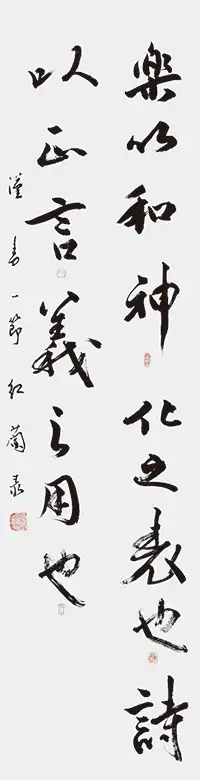 樂以和神仁之表也詩
以正言義之用也
漢書一節 紅蘭